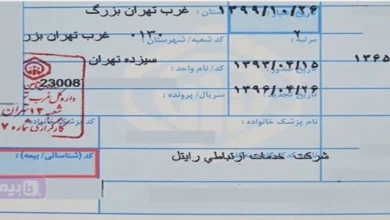 ۱۳۹۹/۱۰/۲۶ استان: غرب تهران بزرگ
مرتبه: ۲ کد شعبه/ شهرستان: ۰۱۳۰ غرب تهران بزر
۱۳۶۵ ۱۳۹۳/۰۴/۱۵ کد/ نام واحد: سیزده تهران
تاریخ تجدید: ۱۳۹۶/۰۴/۲۶ سریال/ پرونده:
23008
شعبه ۱۳ تهران
کارگزاری شماره ۷
نام پزشک خانواده: کد پزشک خانواده:
شرکت خدمات ارتباطي رایتل
کد (شناسائی/ بیمه):
بیم